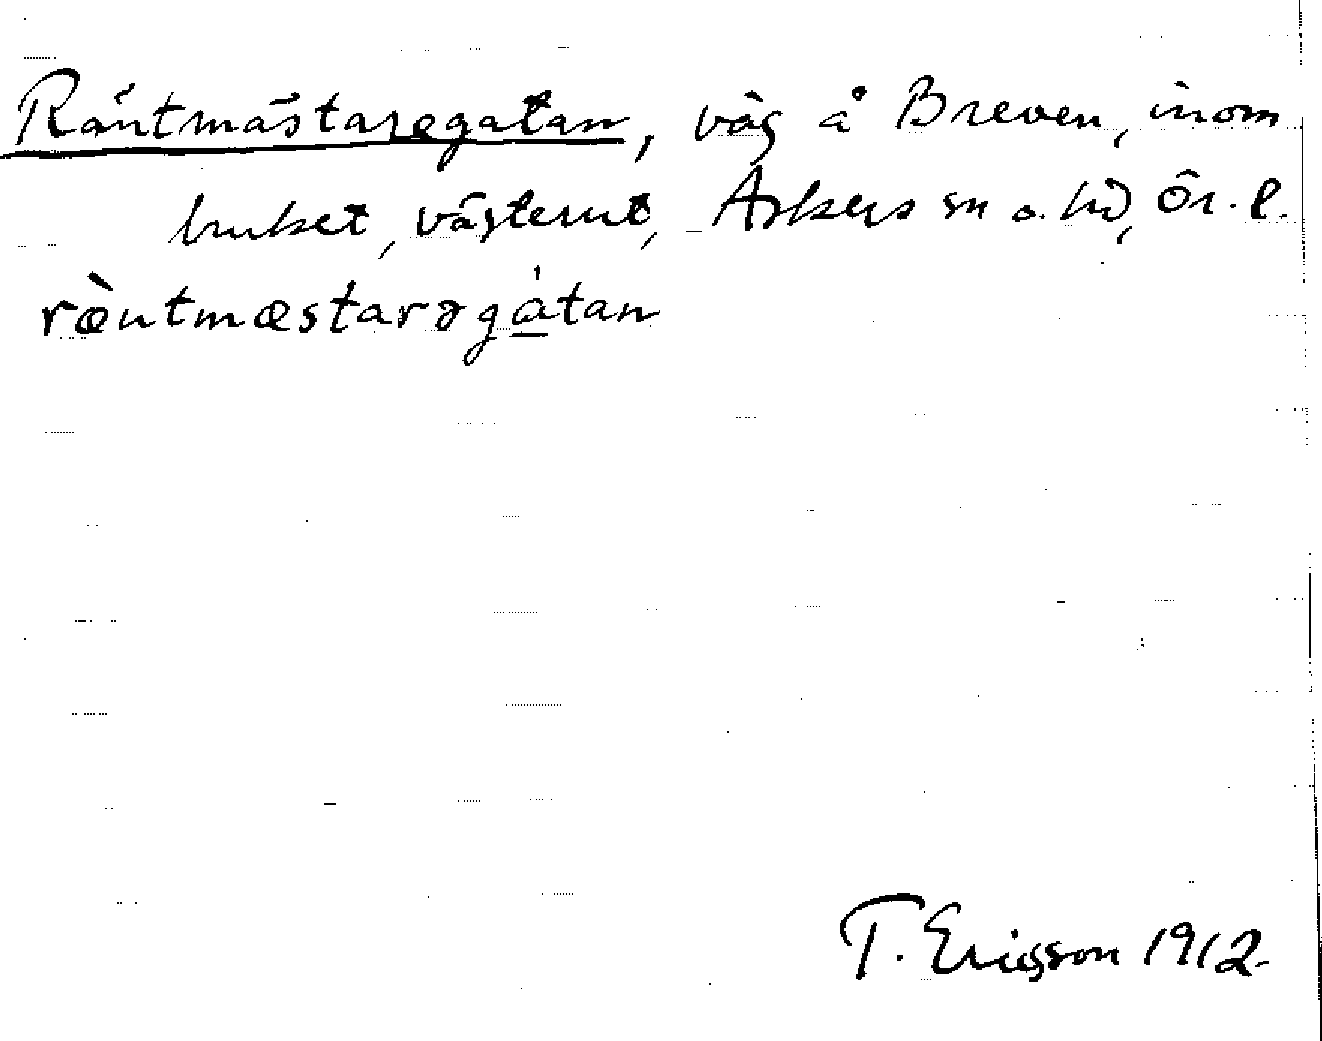 Räntmästaregatan, väg å Breven, inom
bruket, västerut, Askers sn o. hd, Ör. l.
ræ̀ntmæstarəgátan
T. Ericsson 1912.